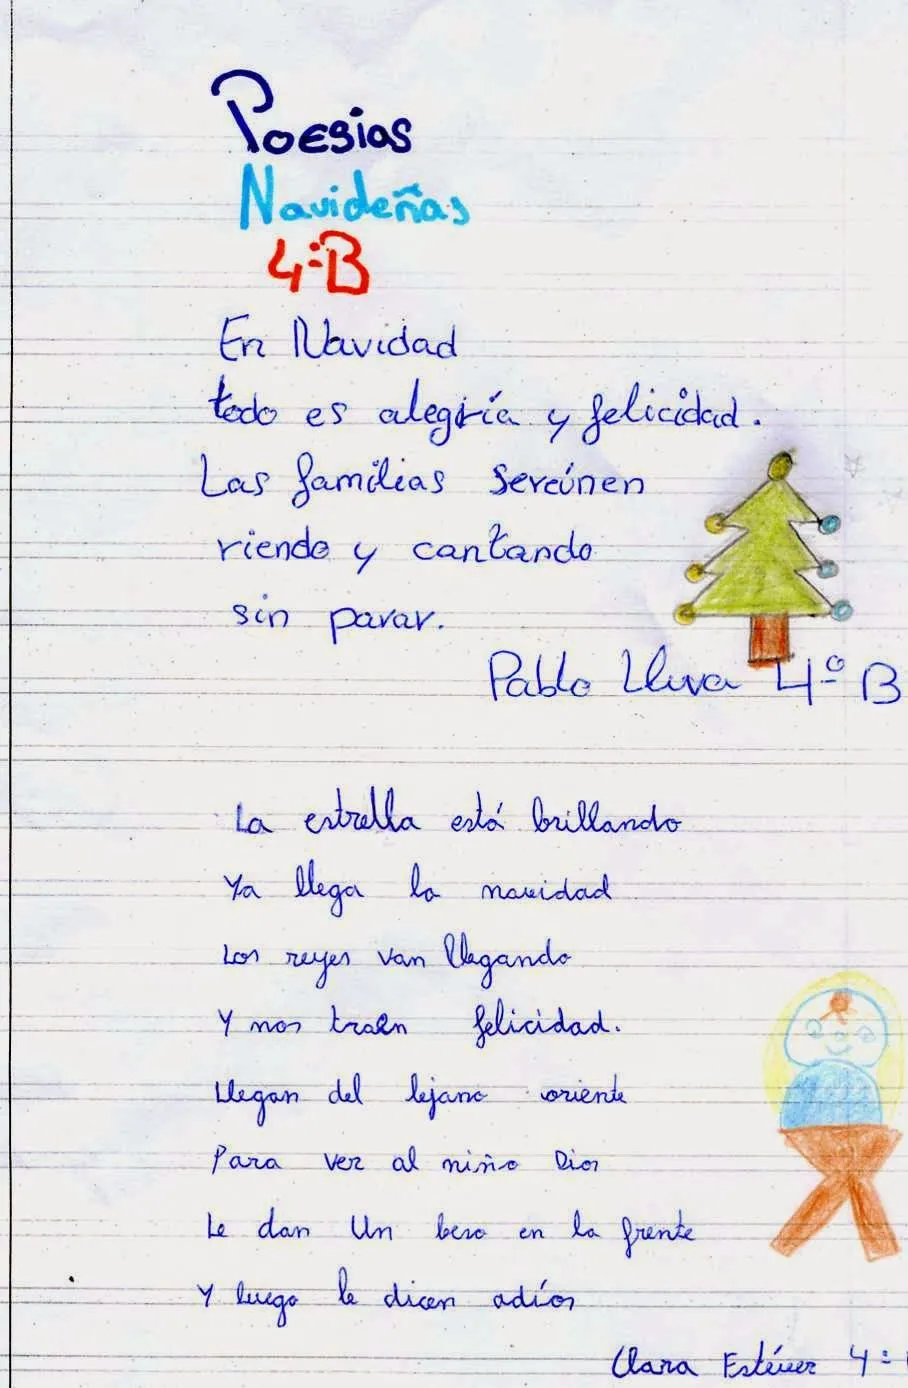 Poesias
Navideñas
4ºB
En Navidad
todo es alegría y felicidad.
Las familias sereúnen
riendo y cantando
sin parar.
Pablo Lluva 4º B
La estrella está brillando
Ya llega la navidad
Los reyes van llegando
Y nos traen felicidad.
Llegan del lejano oriente
Para ver al niño Dios
Le dan Un beso en la frente
Y luego le dicen adíos
Clara Estévez 4º